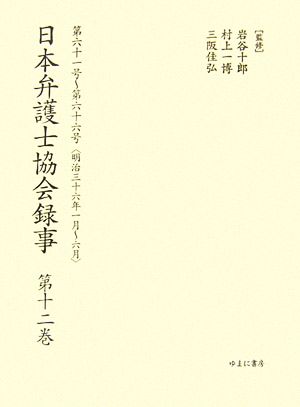 ［監修］
岩谷十郎
村上一博
三阪佳弘
第六十一号〜第六十六号〈明治三十六年一月〜六月〉
日本弁護士協会録事 第十二巻
ゆまに書房